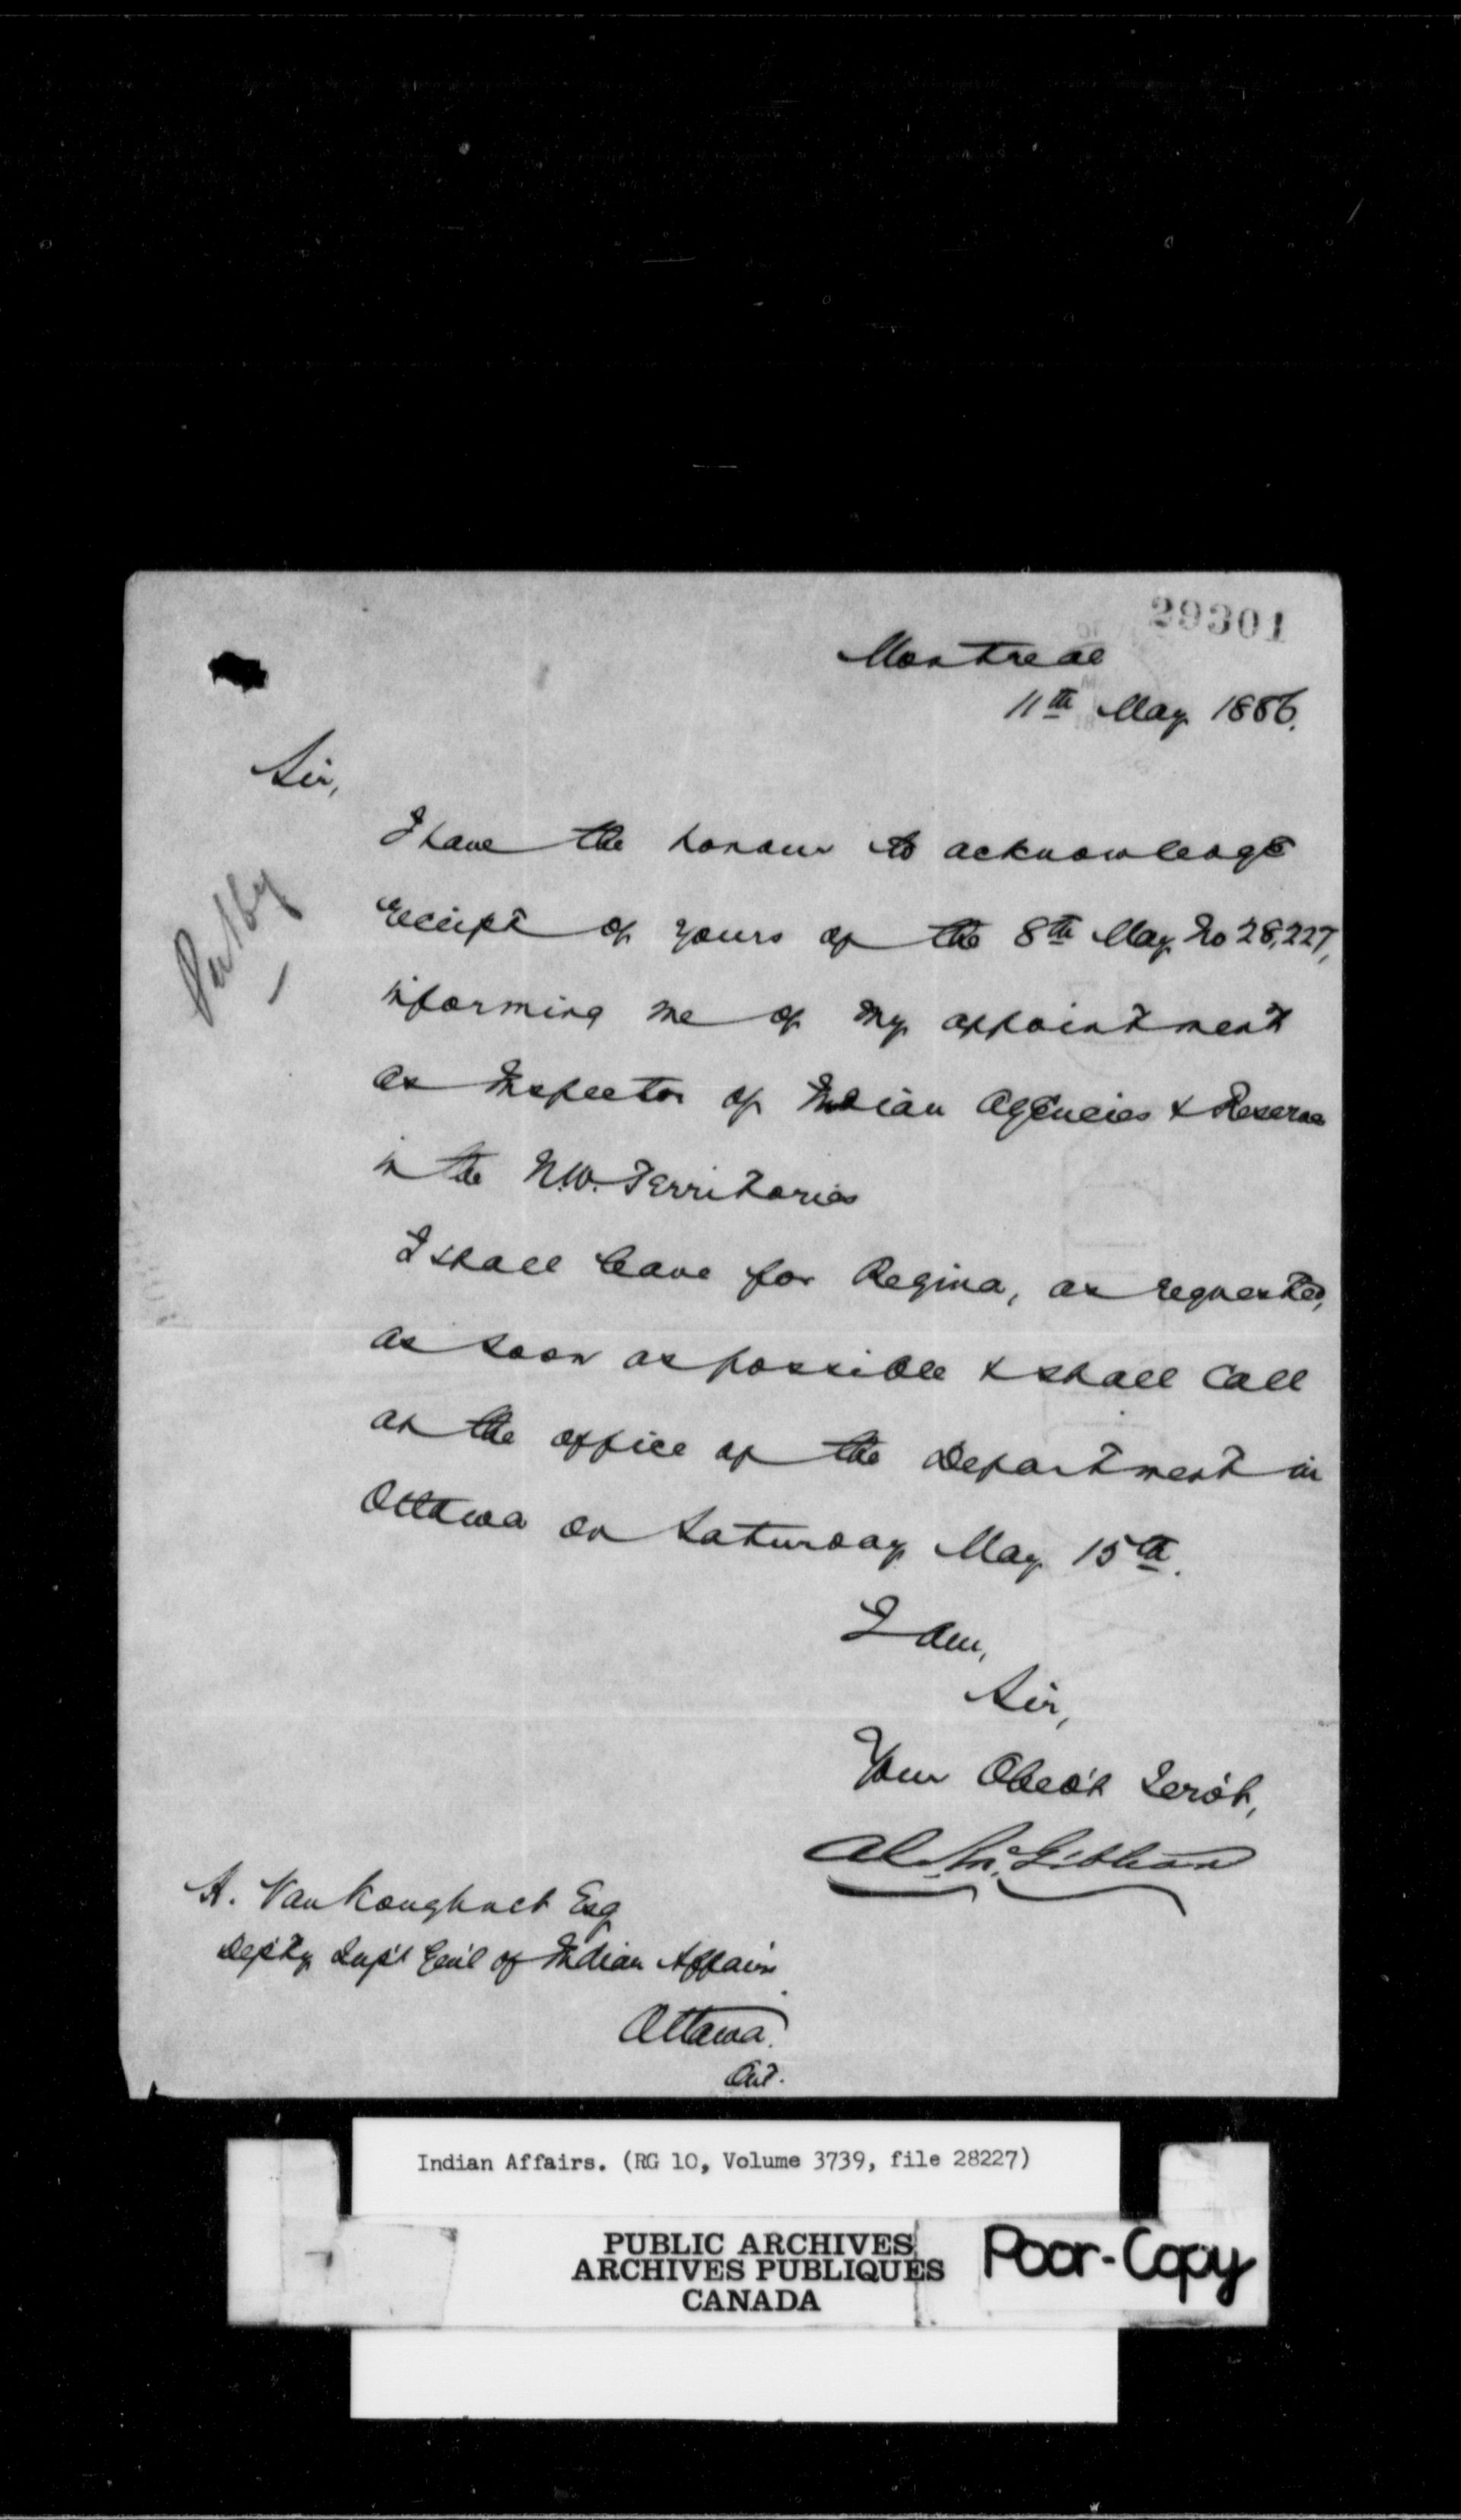 29301
Montreal
11th May 1886.
Sir,
I have the honour to acknowledge
receipt of yours of the 8th May No 28,227,
informing me of my appointment
as Inspector of Indian Agencies & Reserves
in the N.W. Territories
I shall leave for Regina, as requested,
as soon as possible & shall call
at the office of the Department in
Ottawa on Saturday May 15th.
I am,
Sir,
Your Obed't Serv't,
Al. McGibbon
L. Vankoughnet Esq
Dep'ty Sup't Gen'l of Indian Affairs
Ottawa.
Ont.
Put by
Indian Affairs. (RG 10, Volume 3739, file 28227)
PUBLIC ARCHIVES
ARCHIVES PUBLIQUES
CANADA
Poor-Copy